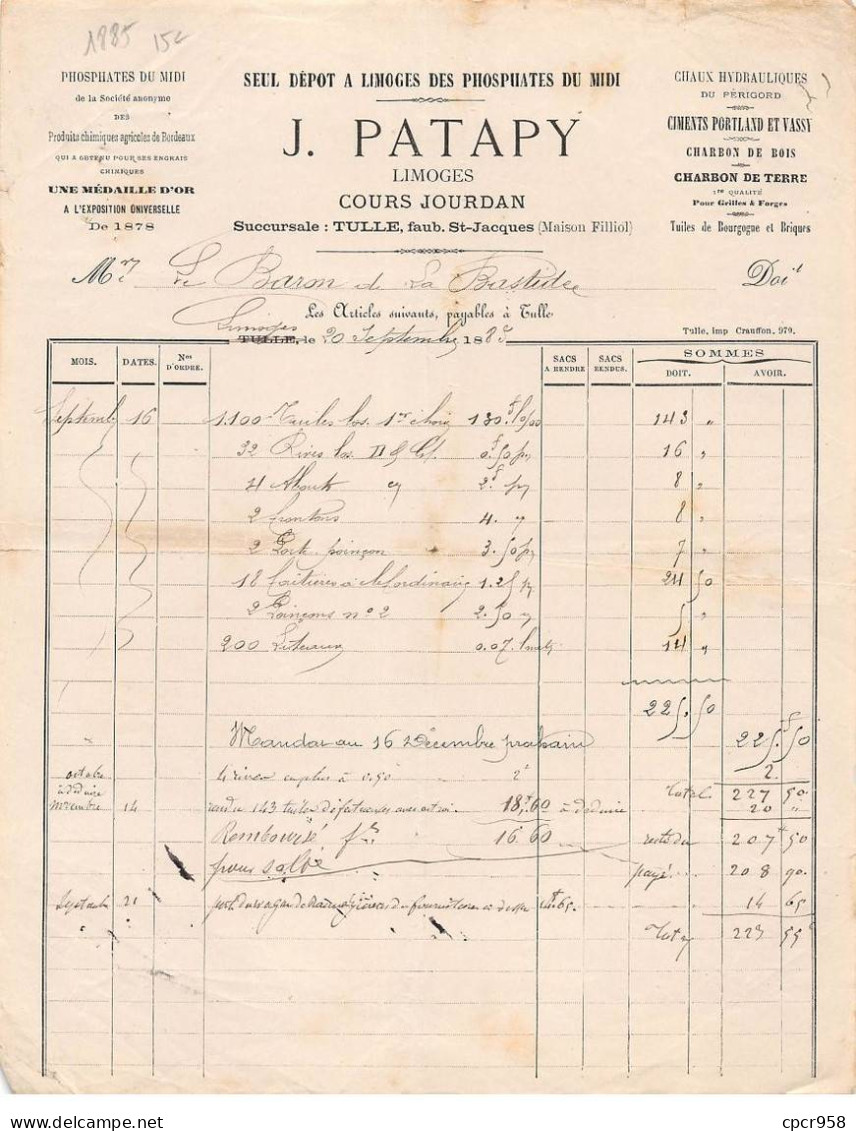 1885 15c
PHOSPHATES DU MIDI
de la Société anonyme
DES
Produits chimiques agricoles de Bordeaux
QUI A OBTENU POUR SES ENGRAIS
CHIMIQUES
UNE MÉDAILLE D'OR
A L'EXPOSITION UNIVERSELLE
De 1878
SEUL DÉPOT A LIMOGES DES PHOSPHATES DU MIDI
J. PATAPY
LIMOGES
COURS JOURDAN
Succursale : TULLE, faub. St-Jacques (Maison Filliol)
CHAUX HYDRAULIQUES
DU PÉRIGORD
CIMENTS PORTLAND ET VASSY
CHARBON DE BOIS
CHARBON DE TERRE
1re QUALITÉ
Pour Grilles & Forges
Tuiles de Bourgogne et Briques
Mr Le Baron de La Bastide Doit
Les Articles suivants, payables à Tulle
Limoges
TULLE, le 20 Septembre 1885
Tulle, Imp Crauffon, 979.
MOIS. DATES. Nos D'ORDRE. SACS A RENDRE SACS RENDUS. SOMMES
DOIT. AVOIR.
Septembre 16 1.100 Tuiles los. 1er choix 130f 0/00 143 "
32 Rives los. D & G. 0f50 pce 16 "
4 Abouts 2f 8 "
2 frontons 4. 8 "
2 Porte poinçon 3.50 7 "
18 faitières 24 50
2 Poinçons n° 2 2.50 5 "
200 Liteaux 0.07 14 "
225.50
Mandat au 16 Décembre prochain 225f50
octobre 4 rives en plus à 0.50 2f 2.
à déduire Total 227 50
novembre 14 rendu 143 tuiles 18f,60 à déduire 20 "
Remboursé 16.60 reste du 207f 50
pour solde payé 208 90
Septembre 21 14f.65 14 65
Total 223 55
cpcr958